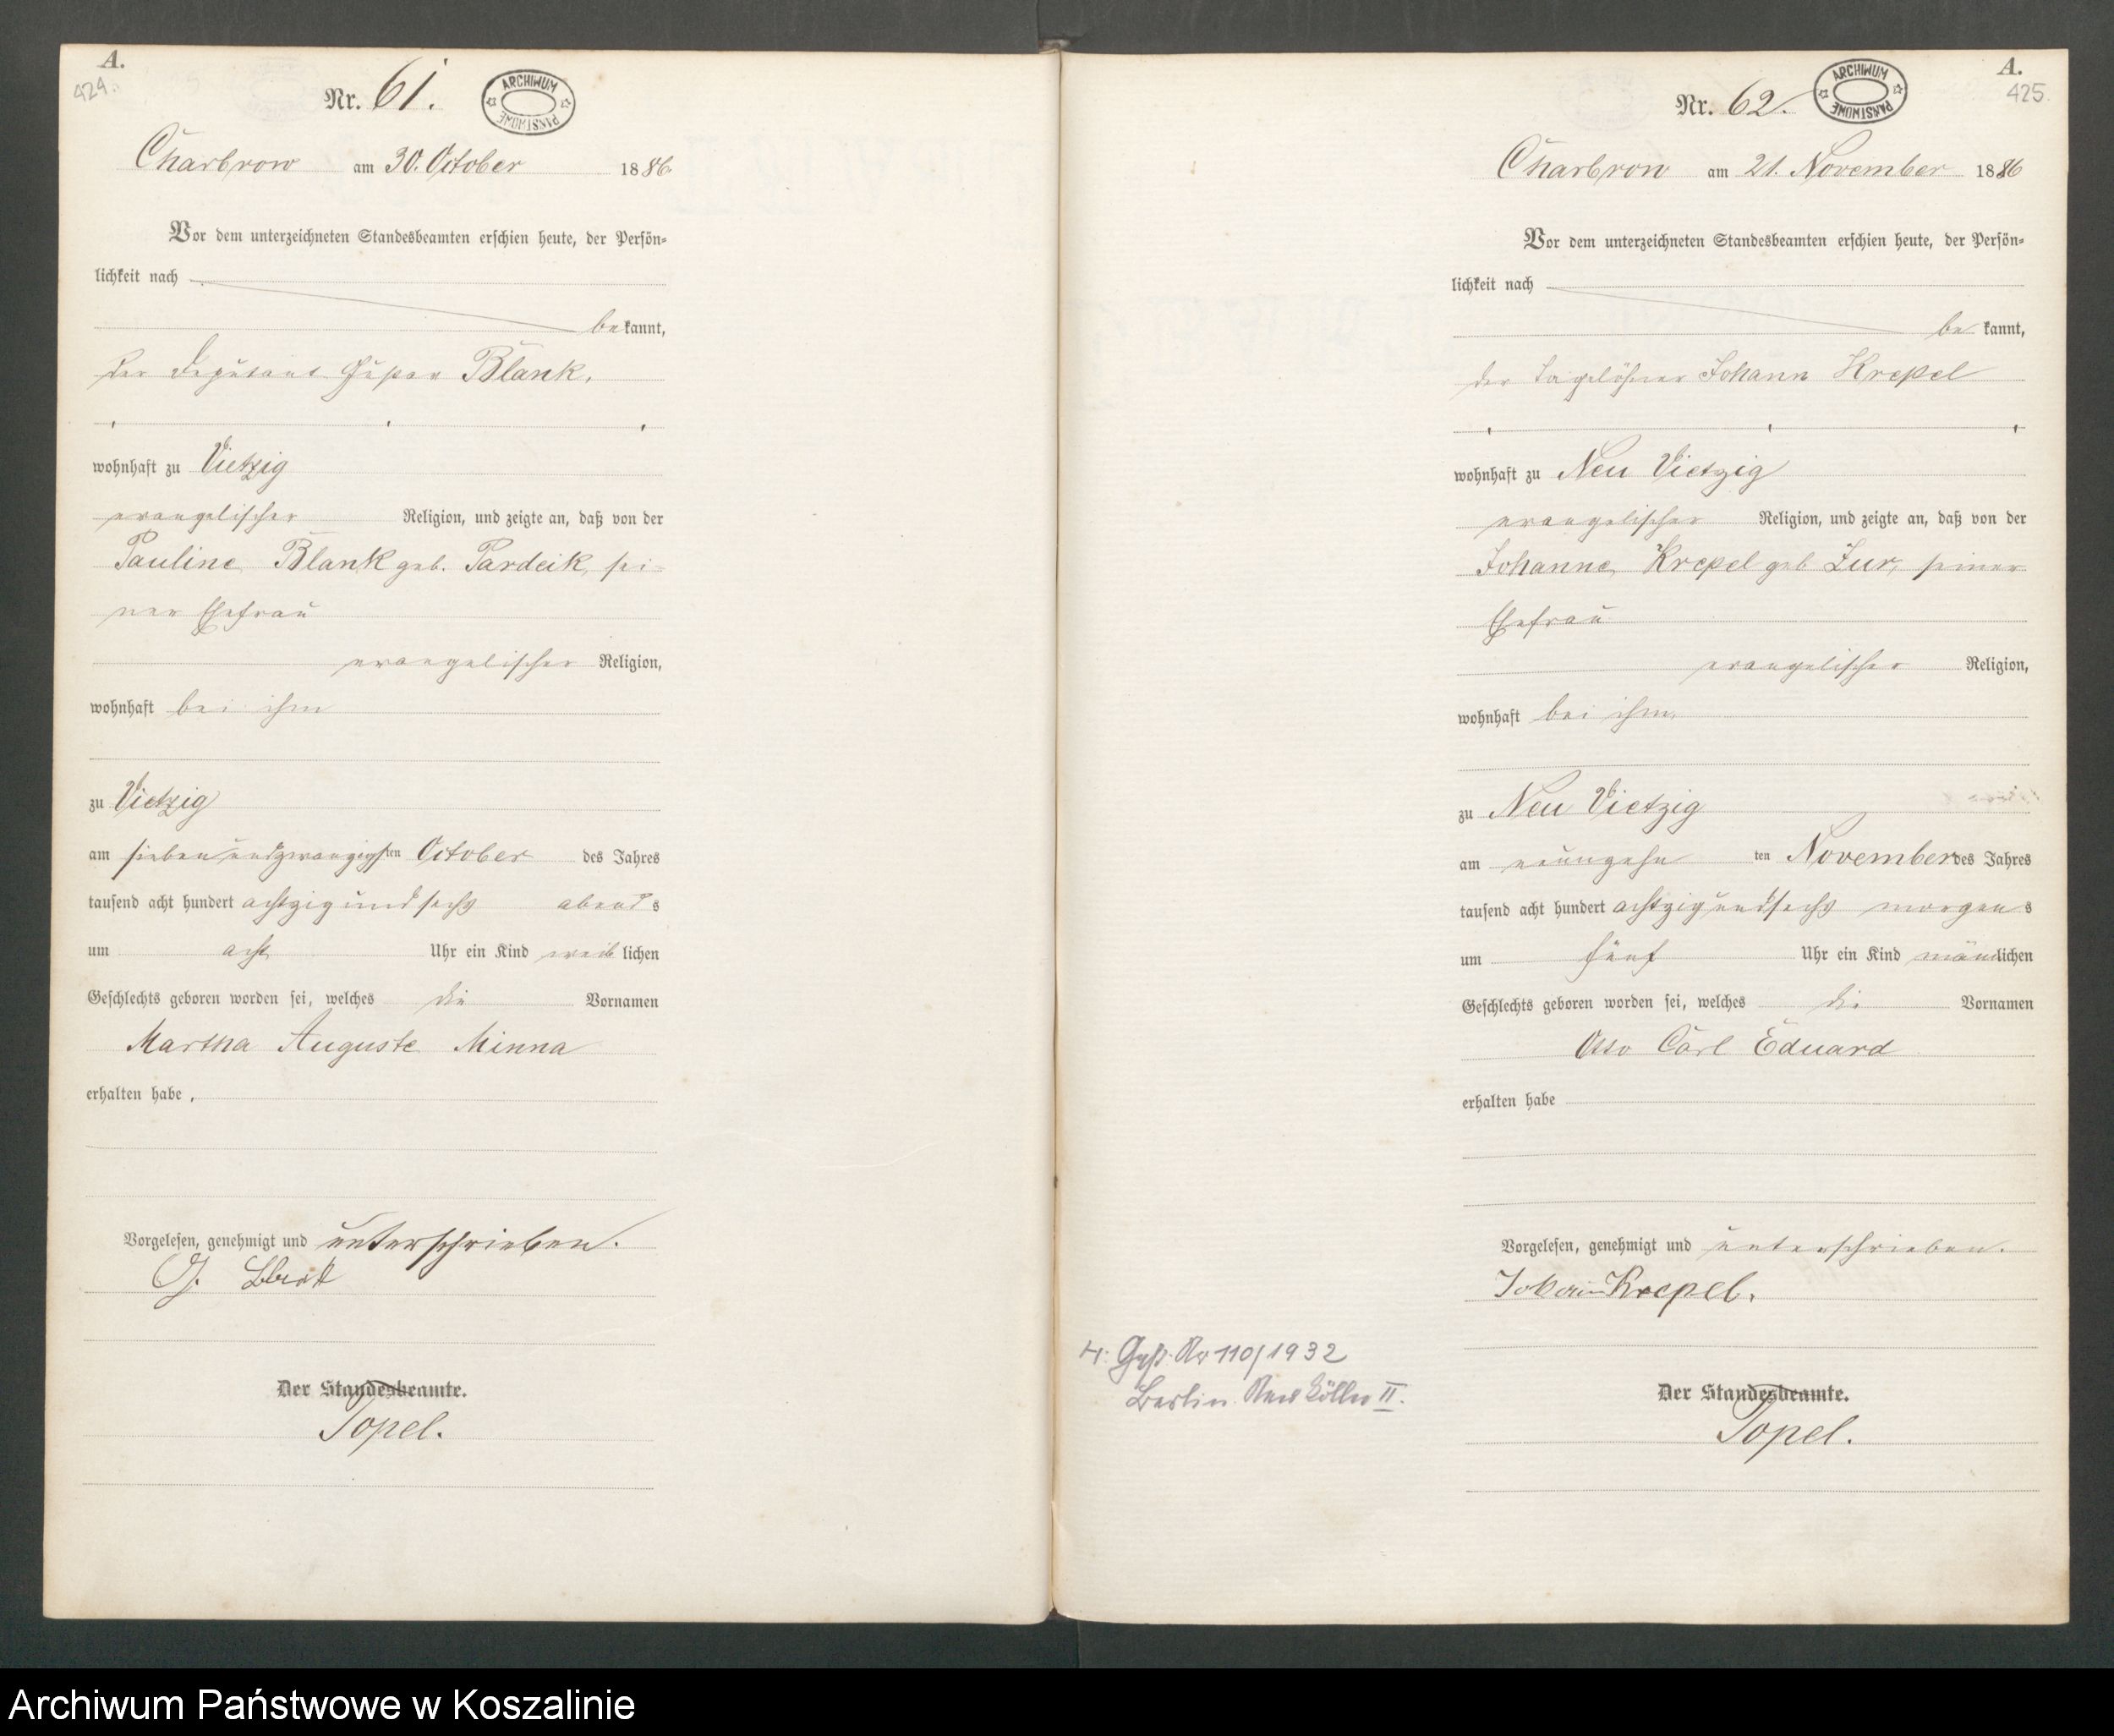 A.
424.
Nr. 61.
ARCHIWUM PAŃSTWOWE
Charbrow am 30. October 1886
Vor dem unterzeichneten Standesbeamten erschien heute, der Persön-
lichkeit nach
bekannt,
der Deputant Blank,
wohnhaft zu Vietzig
evangelischer Religion, und zeigte an, daß von der
Pauline Blank geb. Pardeik, sei-
ner Ehefrau
evangelischer Religion,
wohnhaft bei ihm
zu Vietzig
am siebenundzwanzigsten October des Jahres
tausend acht hundert achtzig und sechs abends
um acht Uhr ein Kind weiblichen
Geschlechts geboren worden sei, welches die Vornamen
Martha Auguste Minna
erhalten habe,
Vorgelesen, genehmigt und unterschrieben.
Der Standesbeamte.
Topel.
A.
425
Nr. 62.
ARCHIWUM PAŃSTWOWE
Charbrow am 21. November 1886
Vor dem unterzeichneten Standesbeamten erschien heute, der Persön-
lichkeit nach
bekannt,
der Tagelöhner Johann Krepel
wohnhaft zu Neu Vietzig
evangelischer Religion, und zeigte an, daß von der
Johanne Krepel geb Zur, seiner
Ehefrau
evangelischer Religion,
wohnhaft bei ihm
zu Neu Vietzig
am neunzehnten November des Jahres
tausend acht hundert achtzig und sechs morgens
um fünf Uhr ein Kind männlichen
Geschlechts geboren worden sei, welches die Vornamen
Otto Carl Eduard
erhalten habe
Vorgelesen, genehmigt und unterschrieben.
Johann Krepel.
Nr 110/1932
Berlin Neukölln II.
Der Standesbeamte.
Topel.
Archiwum Państwowe w Koszalinie